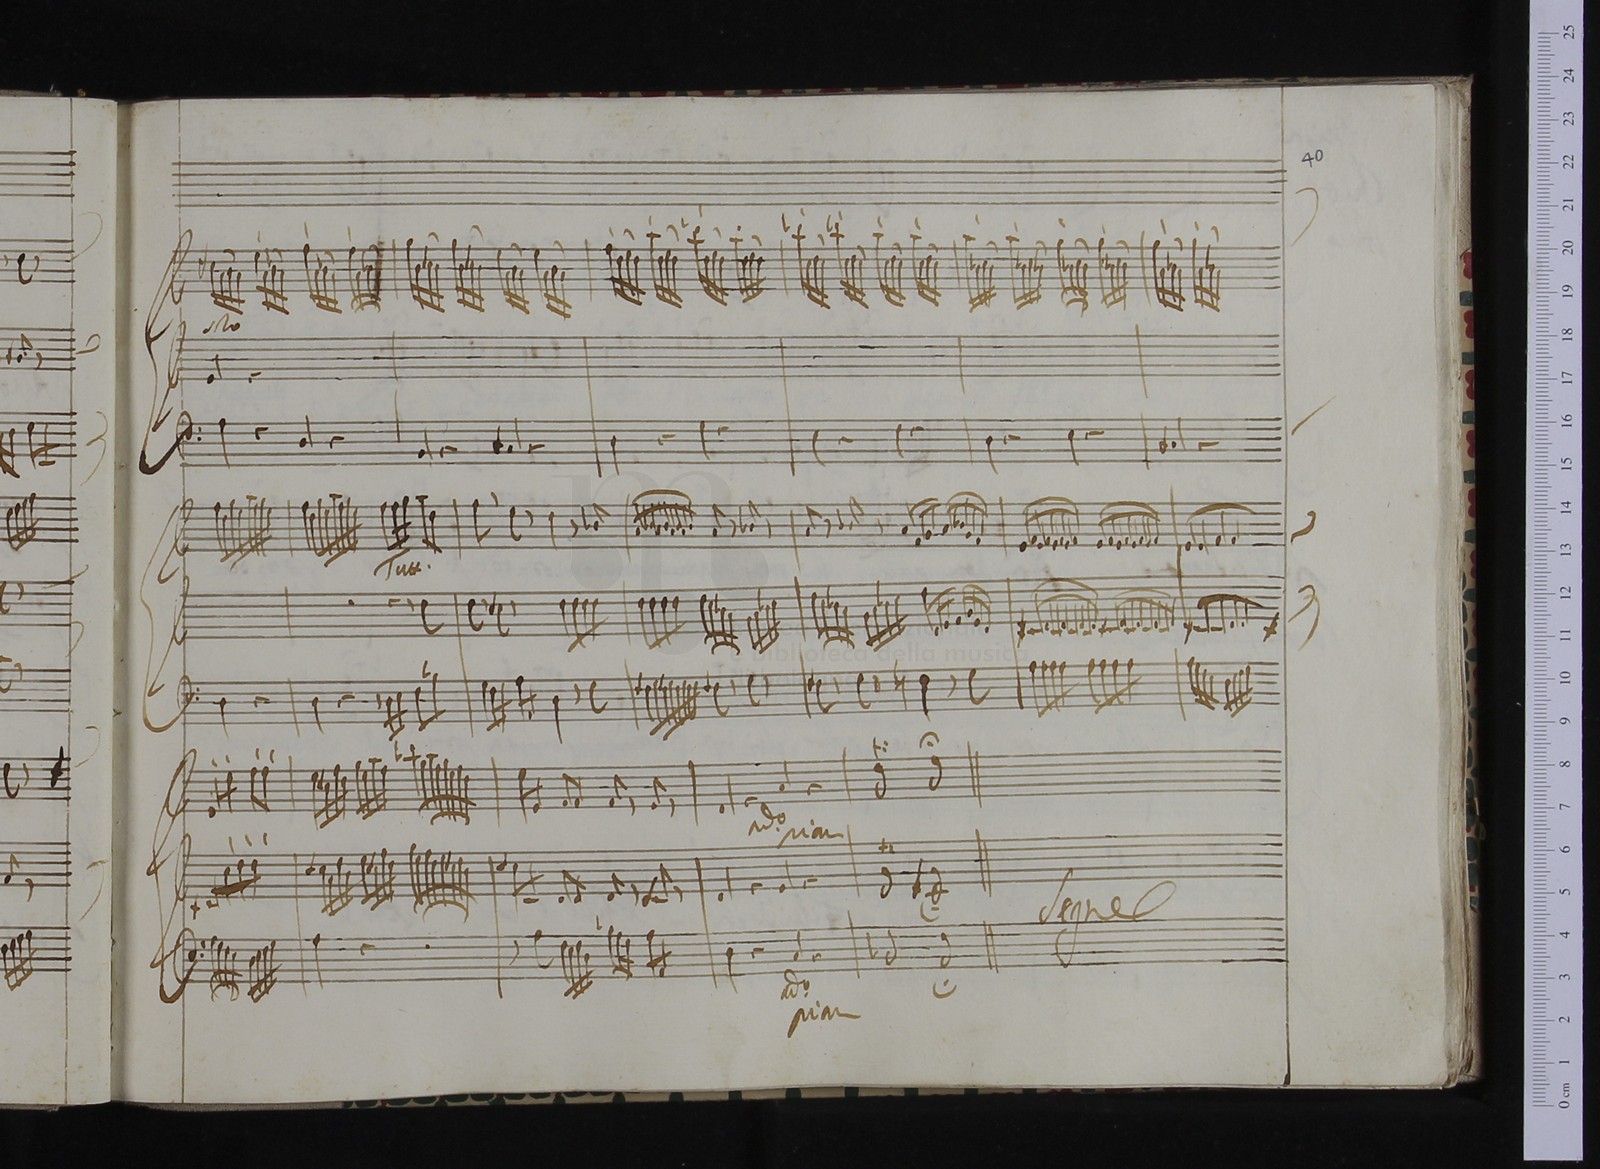 40
solo
Tutti.
e biblioteca della musica
ado
pian
Segue
ado
pian
25
24
23
22
21
20
19
18
17
16
15
14
13
12
11
10
9
8
7
6
5
4
3
2
1
0 cm